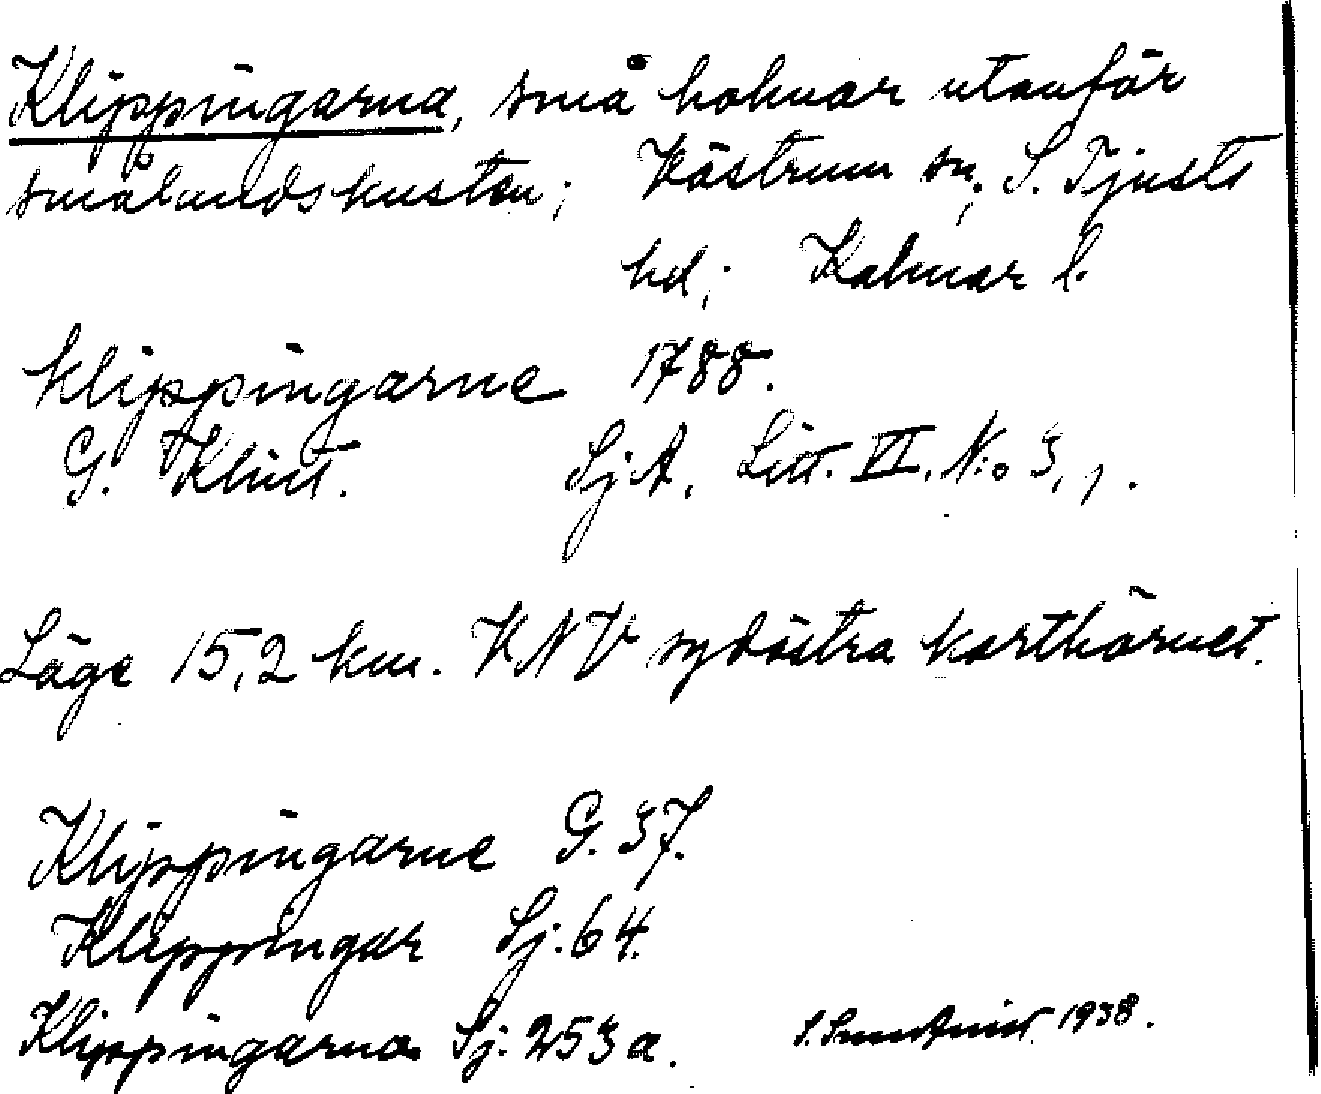 Klippingarna, små holmar utanför
smålandskusten; Västrum sn; S. Tjusts
hd; Kalmar l.
Klippingarne 1788.
G. Klint. SjA, Litt. VI. N:o 3, 1.
Läge 15,2 km. VNV sydöstra karthörnet.
Klippingarne G. 37.
Klippingar Sj. 64.
Klippingarna Sj. 253a.
1938.